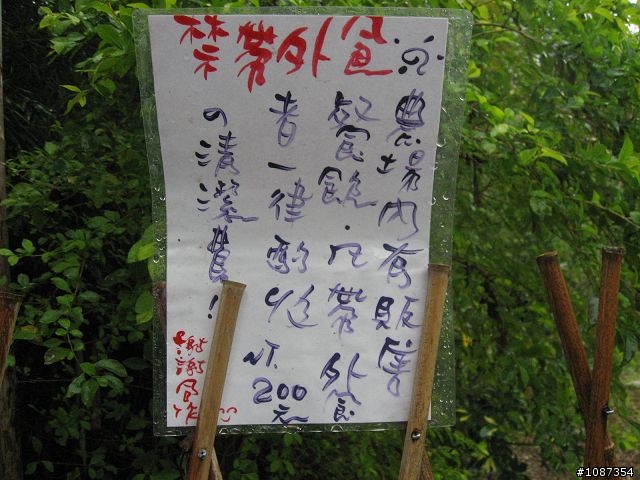 禁帶外食
※農場內有販售
餐飲.凡帶外食
者一律酌收NT.200元
の清潔費!
謝謝合作
#1087354